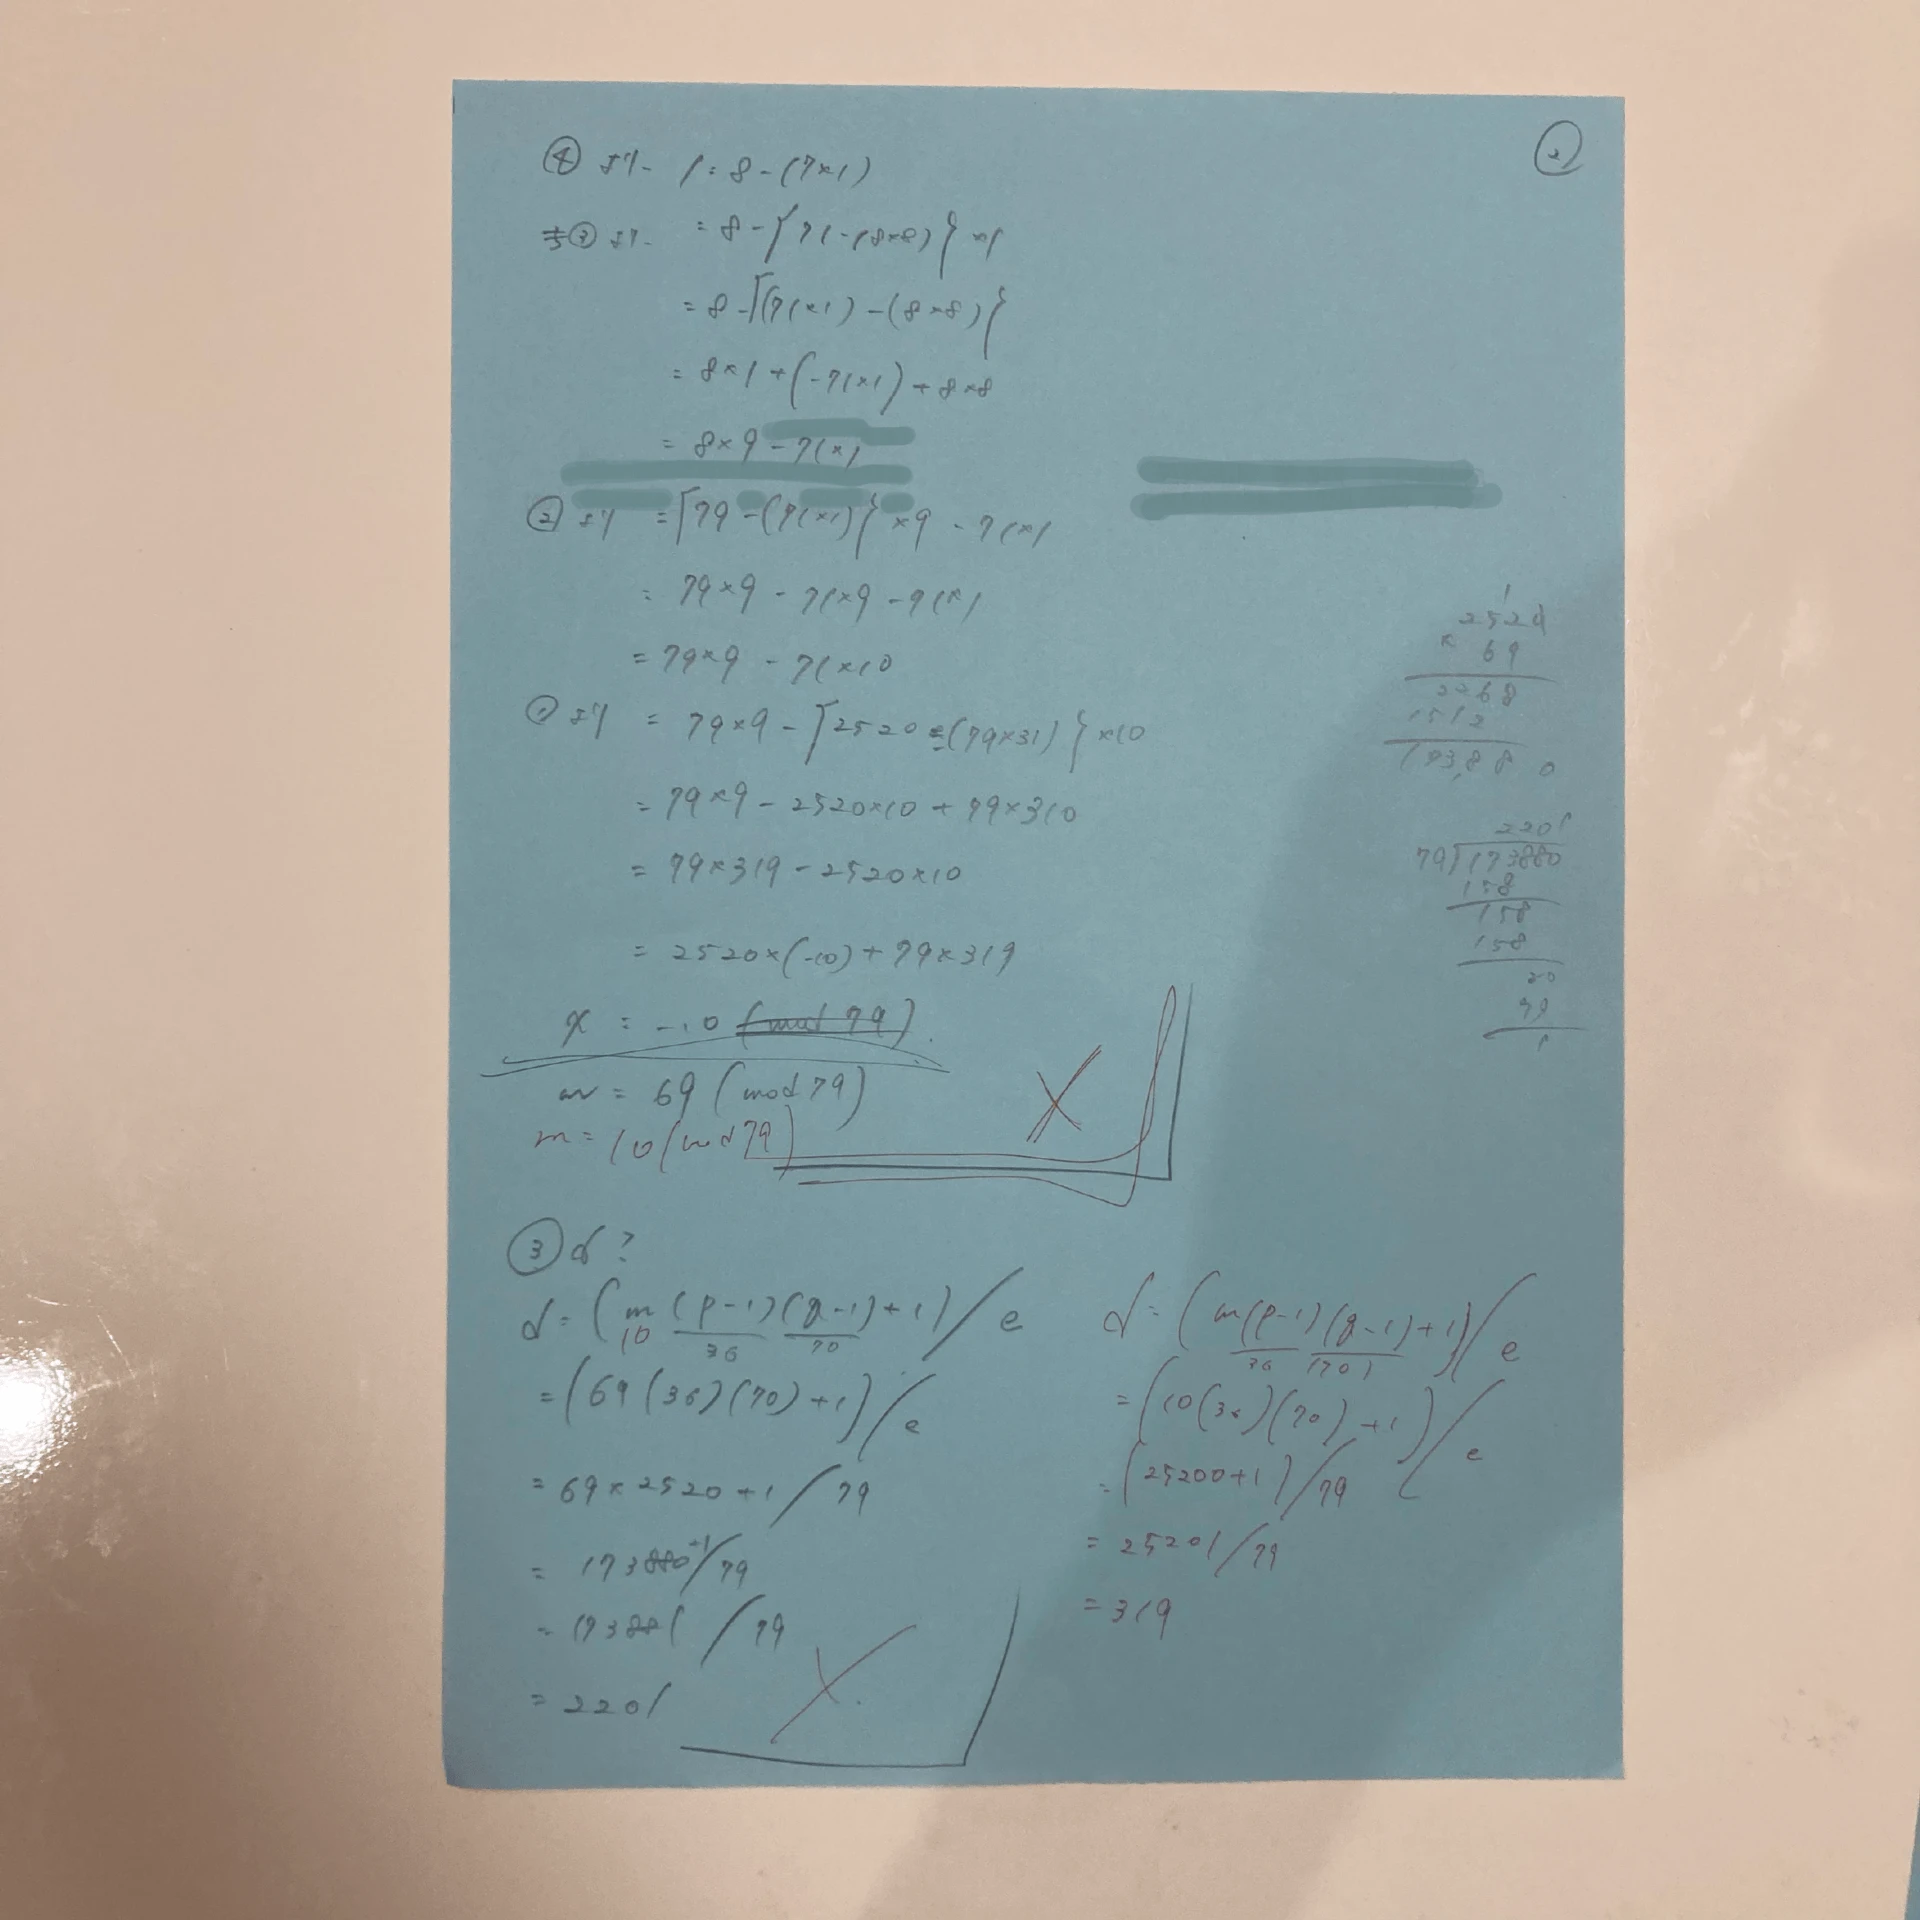 ②
④より 1=8-(7×1)
③より =8-{71-(8×8)}×1
=8-{(71×1)-(8×8)}
=8×1+(-71×1)+8×8
=8×9-71×1
②より ={79-(71×1)}×9-71×1
=79×9-71×9-71×1
=79×9-71×10
①より =79×9-{2520-(79×31)}×10
=79×9-2520×10+79×310
=79×319-2520×10
=2520×(-10)+79×319
x=-10 (mod 79)
m=69 (mod 79)
m=10 (mod 79)
X
1
2520
× 69
2268
1512
173,880
2201
79)173880
158
158
158
80
79
1
③ d?
d=(m(p-1)(q-1)+1)/e
10 36 70
=(69(36)(70)+1)/e
=69×2520+1/79
=173880+1/79
=173881/79
=2201
X
d=(m(p-1)(q-1)+1)/e
36 (70)
=(10(36)(70)+1)/e
=(25200+1)/79
=25201/79
=319